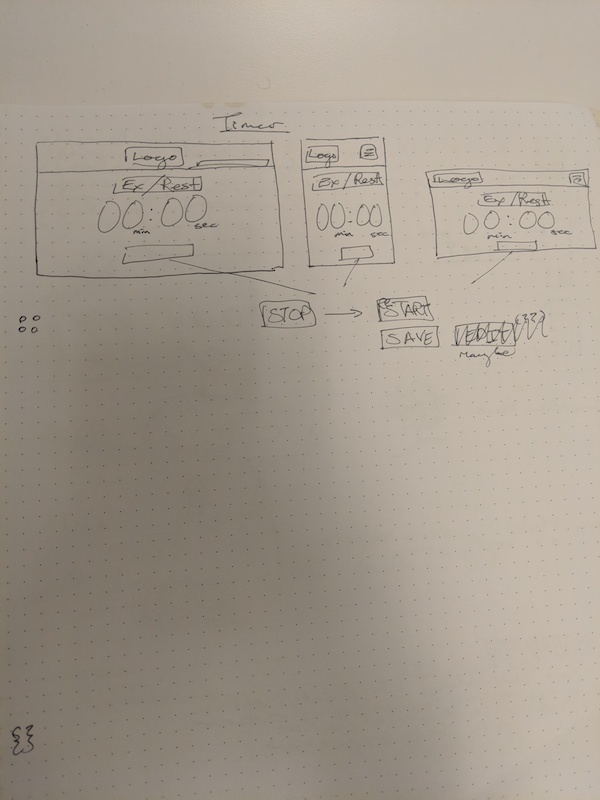 Timer
Logo
Ex/Rest
00:00
min sec
Logo
Ex/Rest
00:00
min sec
Logo
Ex/Rest
00:00
min sec
STOP → RESTART
SAVE
Maybe